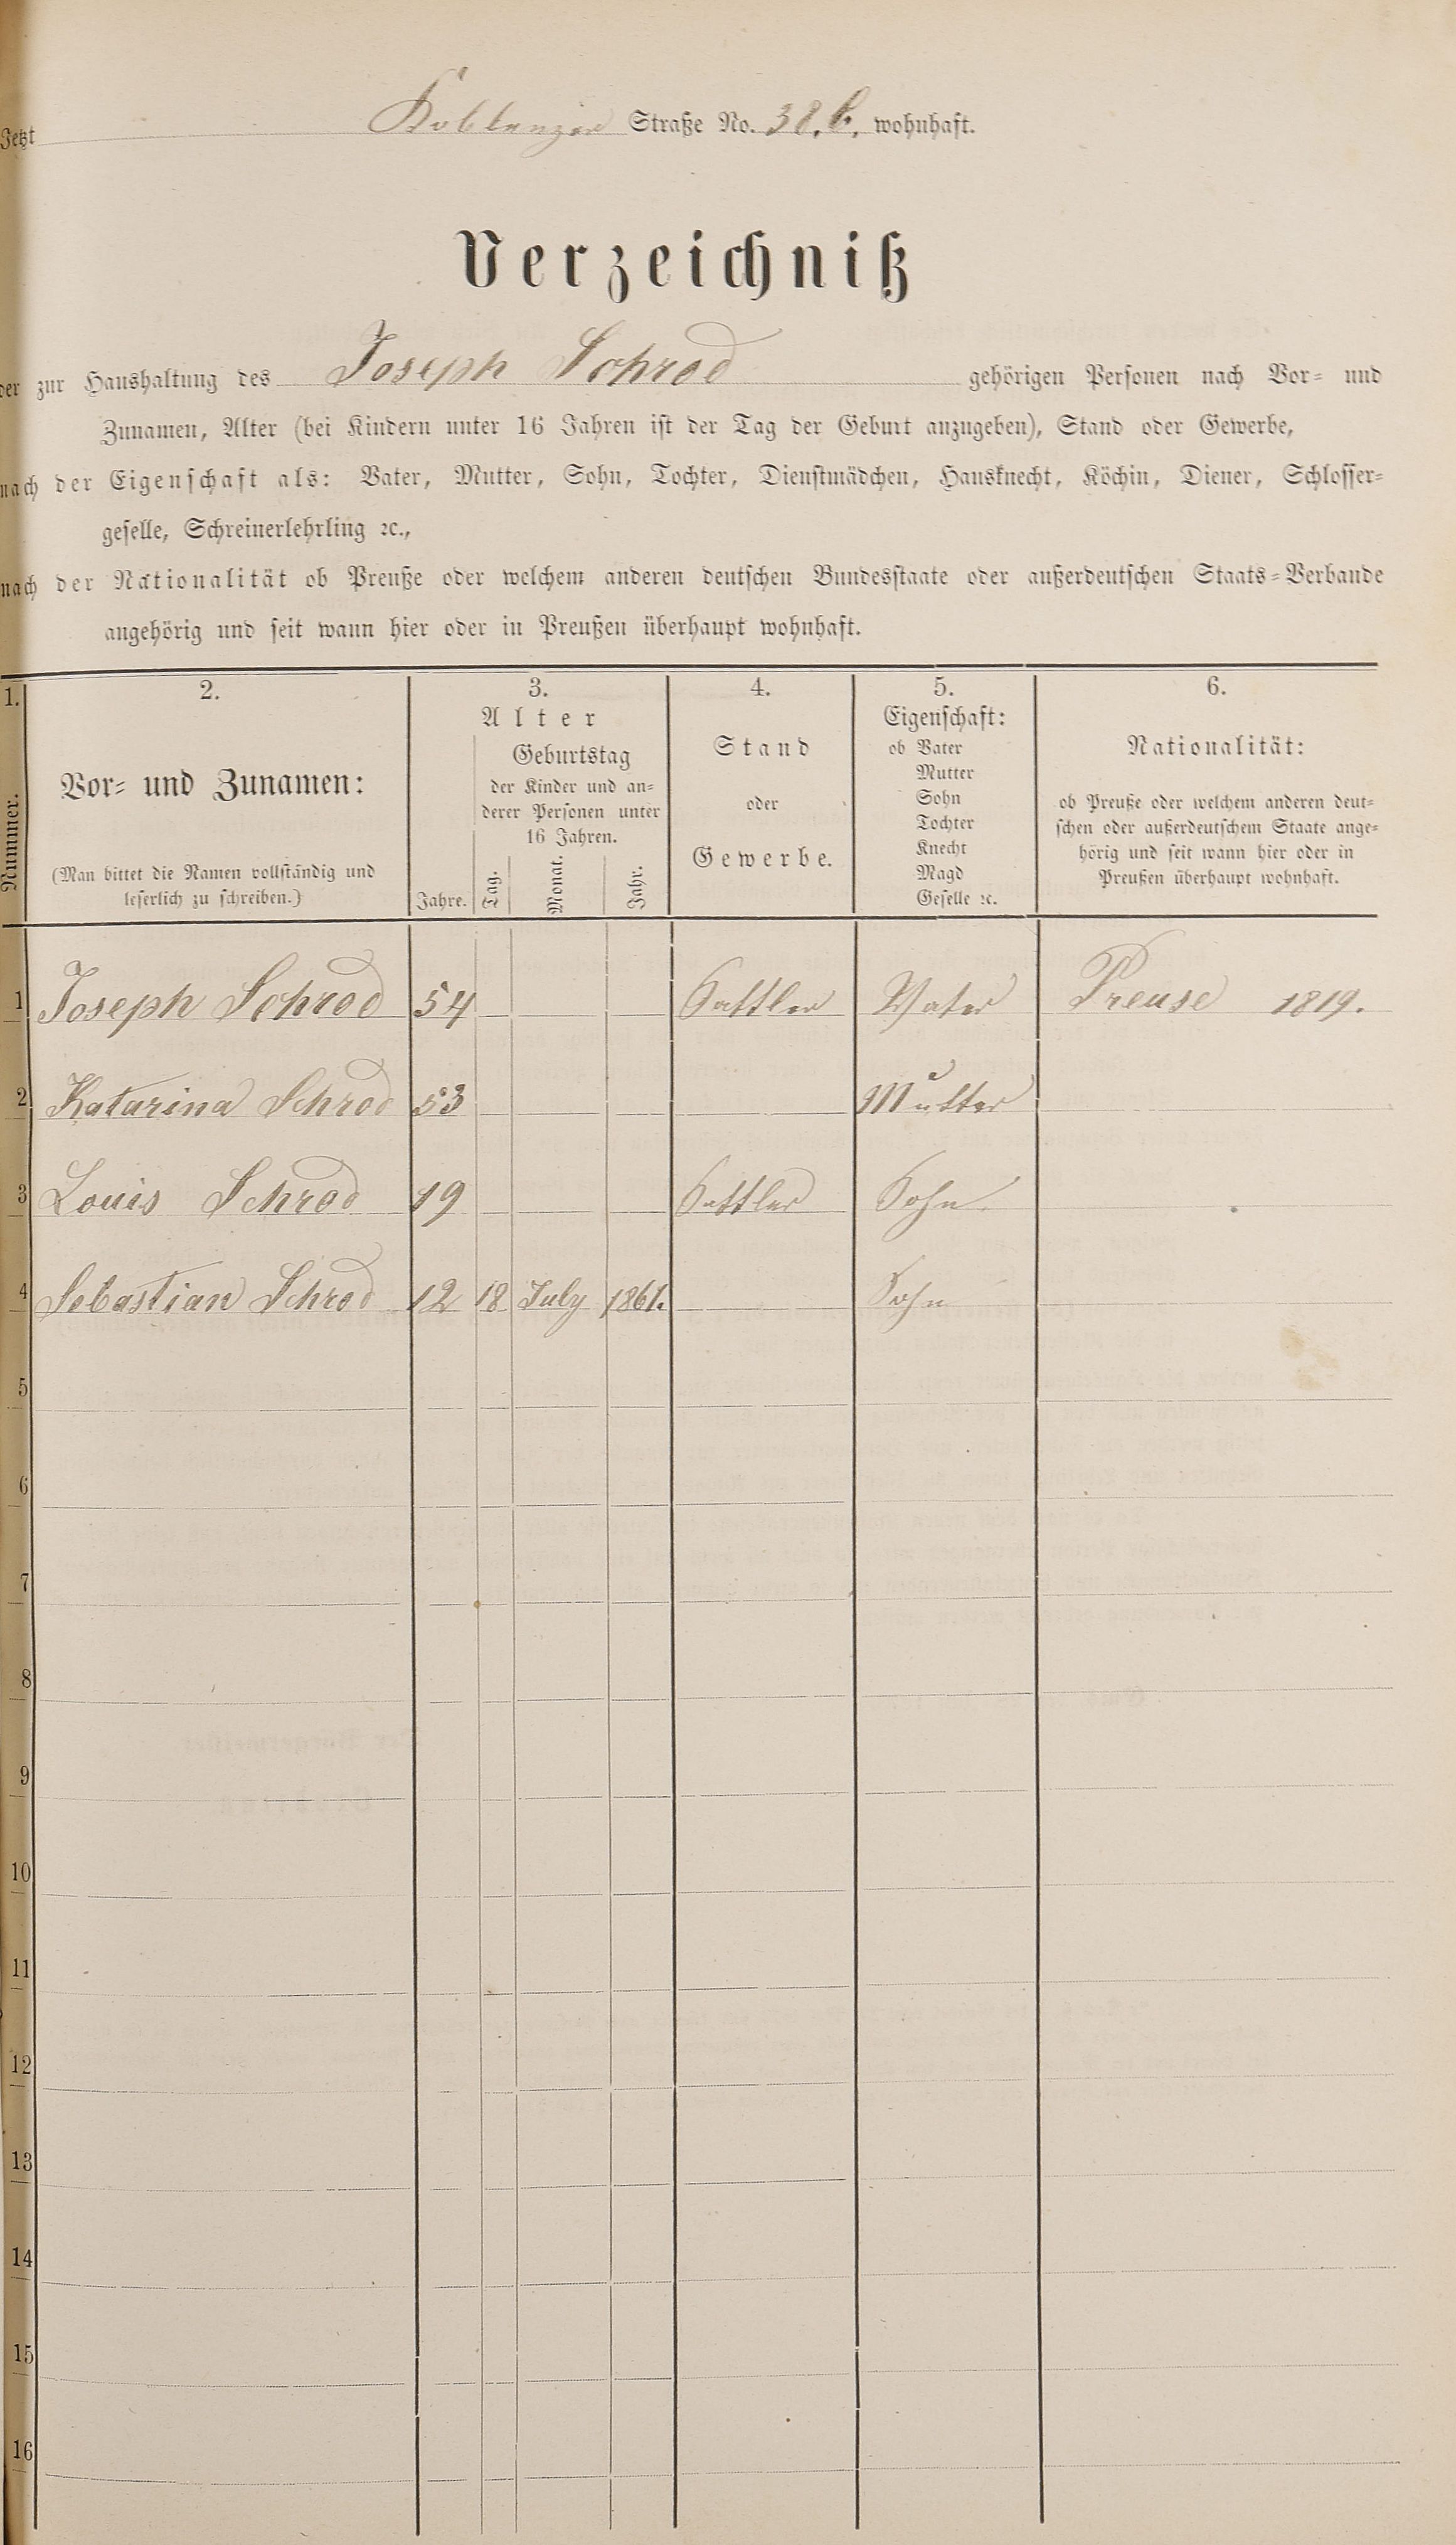 Jetzt Koblenzer Straße No. 38.b. wohnhaft.
Verzeichniß
der zur Haushaltung des Joseph Schrod gehörigen Personen nach Vor- und
Zunamen, Alter (bei Kindern unter 16 Jahren ist der Tag der Geburt anzugeben), Stand oder Gewerbe,
nach der Eigenschaft als: Vater, Mutter, Sohn, Tochter, Dienstmädchen, Hausknecht, Köchin, Diener, Schlosser-
geselle, Schreinerlehrling ꝛc.,
nach der Nationalität ob Preuße oder welchem anderen deutschen Bundesstaate oder außerdeutschen Staats-Verbande
angehörig und seit wann hier oder in Preußen überhaupt wohnhaft.
1.
Nummer.
2.
Vor- und Zunamen:
(Man bittet die Namen vollständig und
leserlich zu schreiben.)
3.
Alter
Jahre.
Geburtstag
der Kinder und an-
derer Personen unter
16 Jahren.
Tag.
Monat.
Jahr.
4.
Stand
oder
Gewerbe.
5.
Eigenschaft:
ob Vater
Mutter
Sohn
Tochter
Knecht
Magd
Geselle ꝛc.
6.
Nationalität:
ob Preuße oder welchem anderen deut-
schen oder außerdeutschem Staate ange-
hörig und seit wann hier oder in
Preußen überhaupt wohnhaft.
1 Joseph Schrod 54 Sattler Vater Preuse 1819.
2 Katarina Schrod 53 Mutter
3 Louis Schrod 19 Sattler Sohn
4 Sebastian Schrod 12 18 July 1861. Sohn
5
6
7
8
9
10
11
12
13
14
15
16